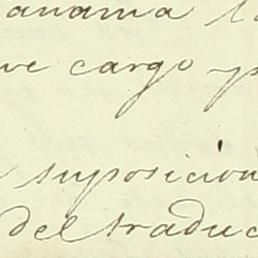 anama
cargo
suposicion
del traduc